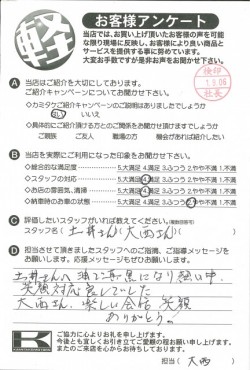 軽
お客様アンケート
当店では、お買い上げ頂いたお客様の声を可能
な限り現場に反映し、お客様により良い商品と
サービスを提供する事に努めています。
大変お手数ですが是非お声をお聞かせ下さい。
検印
1.5.06
社長
A 当店はご紹介を大切にしております。
ご紹介キャンペーンについてお聞かせ下さい。
◇カミタケご紹介キャンペーンのご説明はありましたでしょうか
はい いいえ
◇具体的にご紹介頂ける方とのご関係をお聞かせ頂けますでしょうか
ご親族 ご友人 職場の方 機会があれば紹介したい
B 当店を実際にご利用になった印象をお聞かせ下さい。
◇総合的な満足度 5.大満足 4.満足 3.ふつう 2.やや不満 1.不満
◇スタッフの対応 5.大満足 4.満足 3.ふつう 2.やや不満 1.不満
◇お店の雰囲気、清掃 5.大満足 4.満足 3.ふつう 2.やや不満 1.不満
◇納車時のお車の状態 5.大満足 4.満足 3.ふつう 2.やや不満 1.不満
C 評価したいスタッフがいれば教えてください。(複数回答可)
スタッフ名( 土井さん(大西さん) )
D 担当させて頂きましたスタッフへのご指摘、ご指導メッセージを
お願いします。応援メッセージもぜひお願い致します。
土井さんへ
笑顔対応 良しでした
大西さん、楽しい会話、笑顔
ありがとう。
K
ご協力に心よりお礼を申し上げます。
今後とも宜しくお引き立てご愛顧の程お願い申し上げます。
またのご来店を心からお待ちしております。
担当( 大西 )